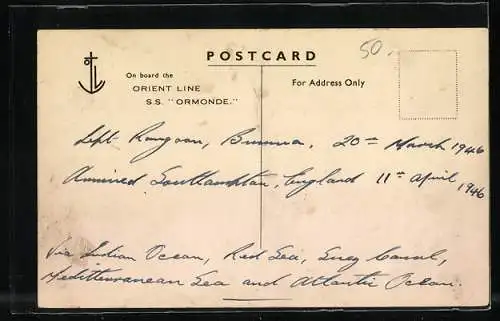 POSTCARD
50.
On board the
ORIENT LINE
S.S. "ORMONDE."
For Address Only
Left Rangoon, Burma, 20th March 1946
Arrived Southampton, England 11th April 1946
Via Indian Ocean, Red Sea, Suez Canal,
Mediterranean Sea and Atlantic Ocean.